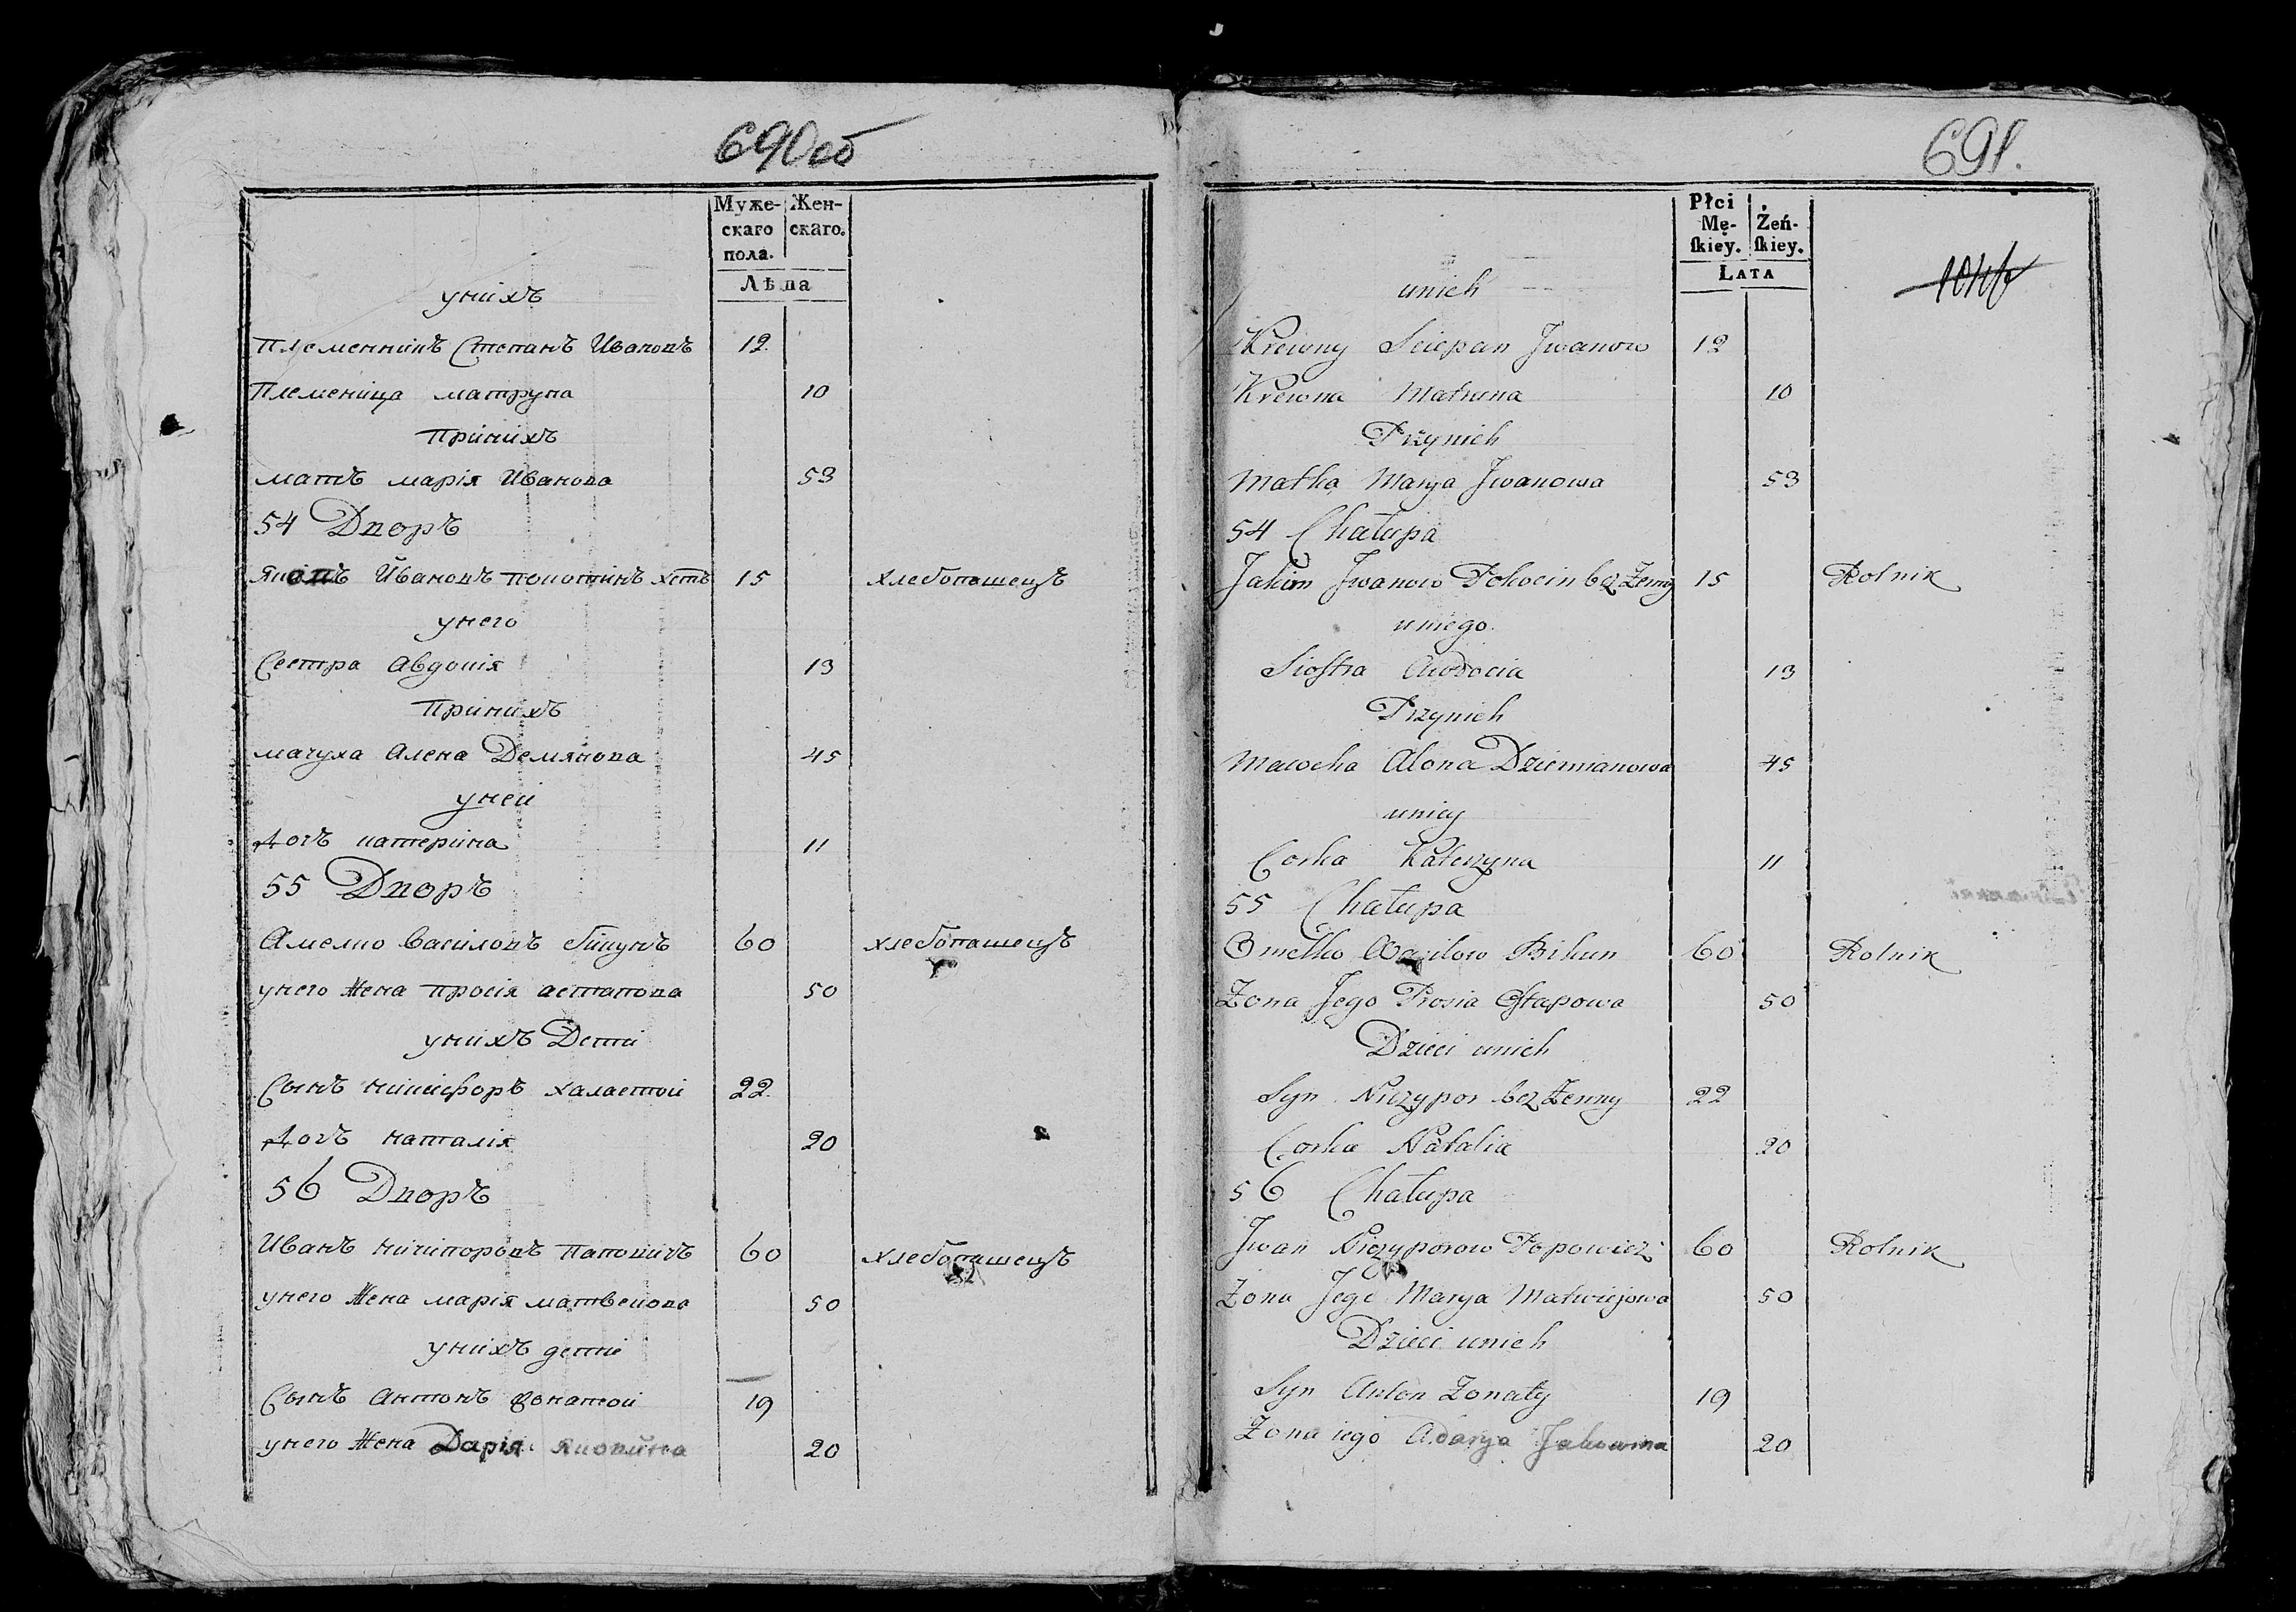 690об
Муже-
скаго
пола.
Жен-
скаго.
Лѣта
унихъ
Племенникъ Степанъ Ивановъ 12
Племеница матруна 10
Принихъ
мать марія Иванова 53
54 Дворъ
Иванов холостъ 15 хлебопашецъ
унего
Сестра Авдокія 13
Принихъ
мачуха Алена Демянова 45
уней
дочъ катерина 11
55 Дворъ
Амелко Василовъ бикунъ 60 хлебопашецъ
унего Жена прося астапова 50
унихъ Дети
Сынъ никифоръ халастой 22
дочъ наталія 20
56 Дворъ
Иванъ ничипоровъ Паповичъ 60 хлебопашецъ
унего Жена марія матвеиова 50
унихъ дети
Сынъ Антонъ жонатой 19
унего Жена Дарія яковина 20
691.
Płci
Mę-
skiey.
Żeń-
skiey.
Lata
unich
Krewny Sciepan Jwanow 12
Krewna Matruna 10
Przynich
Matka Marya Jwanowa 53
54 Chałupa
Jakim Jwanow Pokocin bez Zenny 15 Rolnik
uniego
Siostra Awdocia 13
Przynich
Macocha Alona Dziemianowa 45
uniey
Corka Katerzyna 11
55 Chałupa
Omelko Wasilow Bikun 60 Rolnik
Zona Jego Prosia Ostapowa 50
Dzieci unich
Syn Niczypor bez Zenny 22
Corka Natalia 20
56 Chałupa
Jwan Niczyporow Popowicz 60 Rolnik
Zona Jego Marya Matwiejowa 50
Dzieci unich
Syn Anton Zonaty 19
Zona iego Adarya Jakowina 20